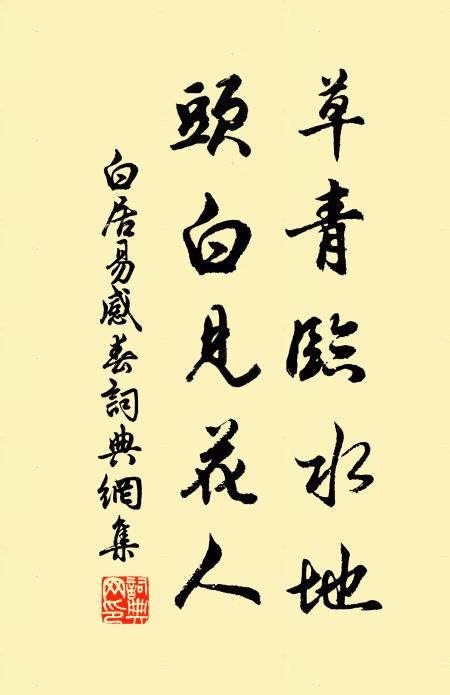 草青臨水地
頭白見花人
白居易感春詞典網集
詞典網印